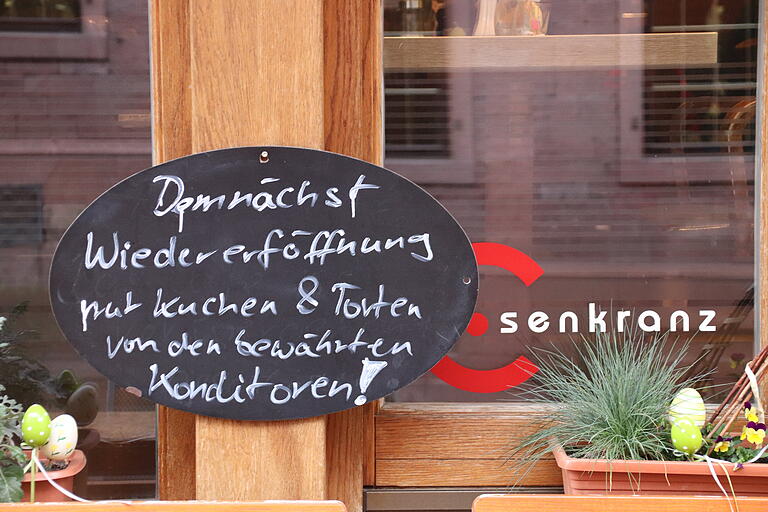 Demnächst
Wiedererröffnung
mit Kuchen & Torten
von den bewährten
Konditoren!
senkranz